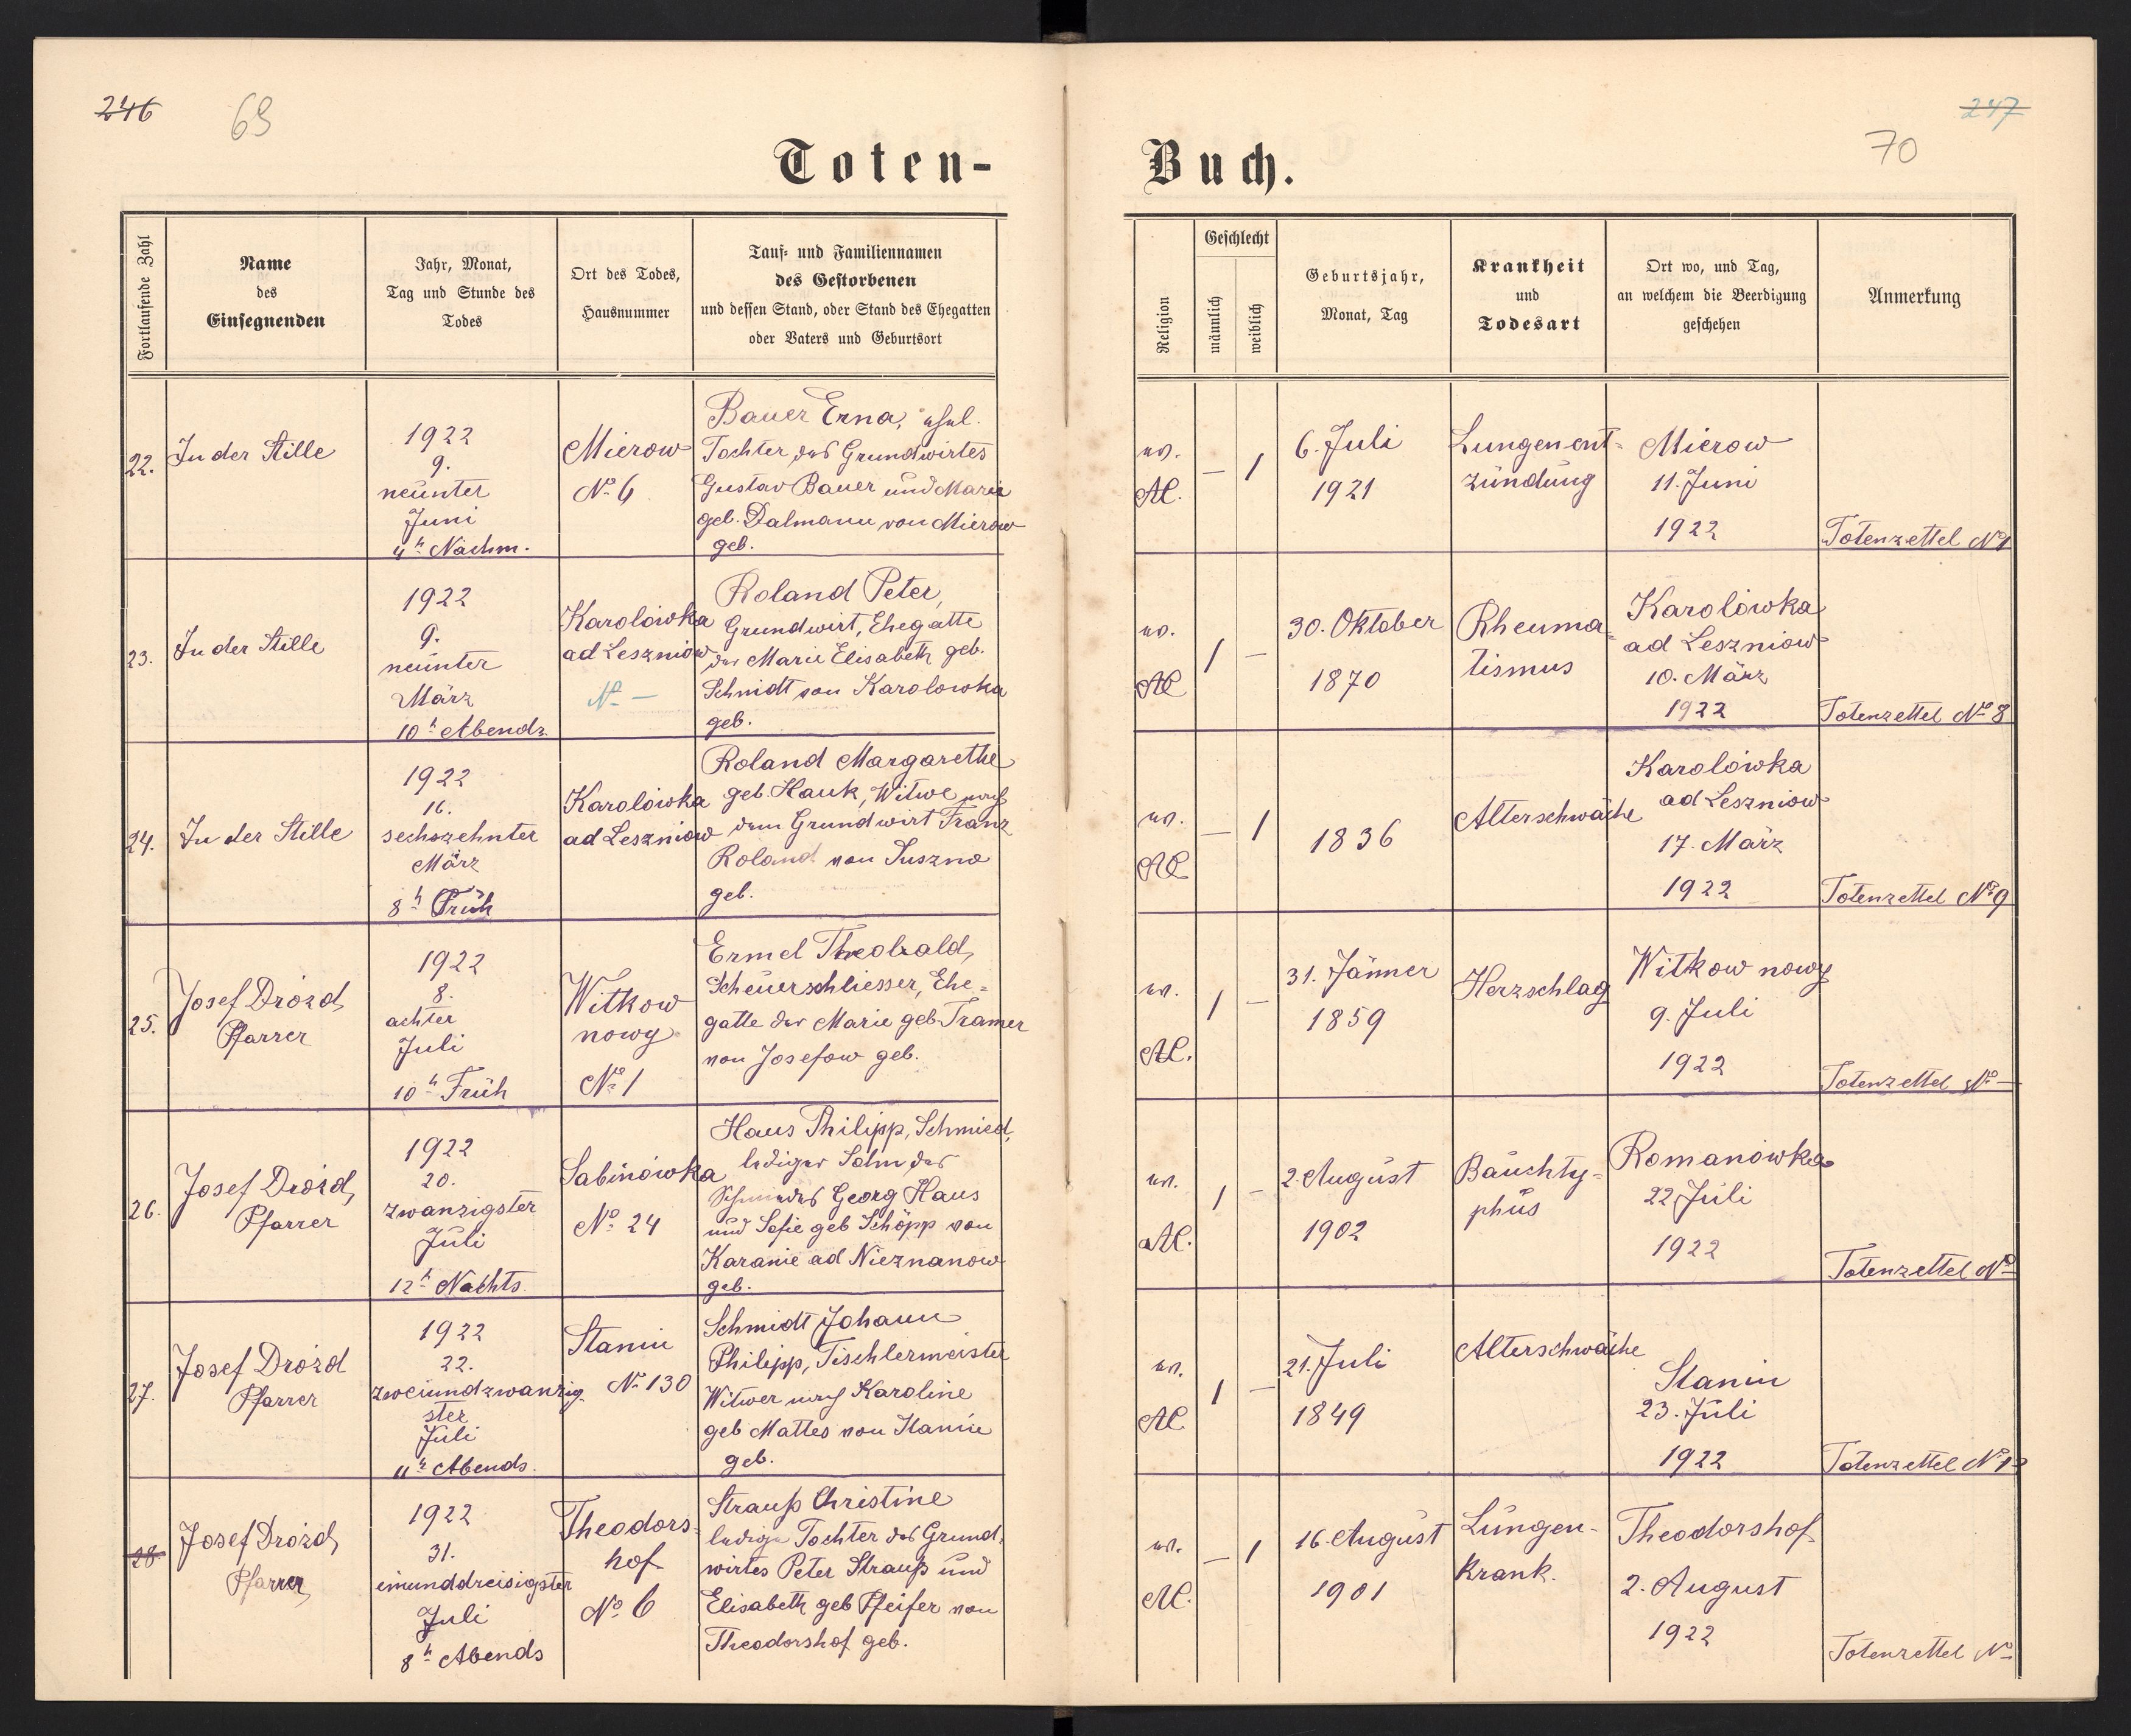 246
69
Toten-
Fortlaufende Zahl
Name
des
Einsegnenden
Jahr, Monat,
Tag und Stunde des
Todes
Ort des Todes,
Hausnummer
Tauf- und Familiennamen
des Gestorbenen
und dessen Stand, oder Stand des Ehegatten
oder Vaters und Geburtsort
22.
In der Stille
1922
9.
neunter
Juni
4h Nachm.
Mierow
No 6
Bauer Erna, ehel.
Tochter des Grundwirtes
Gustav Bauer und Marie
geb. Dalmann von Mierow
geb.
23.
In der Stille
1922
9.
neunter
März
10h Abends
Karolówka
ad Leszniow
No —
Roland Peter,
Grundwirt, Ehegatte
der Marie Elisabeth geb.
Schmidt von Karolowka
geb.
24.
In der Stille
1922
16.
sechszehnter
März
8h Früh
Karolówka
ad Leszniow
Roland Margarethe
geb. Hauk, Witwe nach
dem Grundwirt Franz
Roland von Suszno
geb.
25.
Josef Drozd,
Pfarrer
1922
8.
achter
Juli
10h Früh
Witkow
nowy
No 1
Ermel Theobald,
Scheuerschliesser, Ehe-
gatte der Marie geb. Tramer
von Josefow geb.
26.
Josef Drozd,
Pfarrer
1922
20.
zwanzigster
Juli
12h Nachts
Sabinówka
No 24
Haus Philipp, Schmied,
lediger Sohn des
Schmiedes Georg Haus
und Sofie geb Schöpp von
Karanie ad Nieznanow
geb.
27.
Josef Drozd
Pfarrer
1922
22.
zweiundzwanzig
ster
Juli
Abends.
Stanin
No 130
Schmidt Johann
Philipp, Tischlermeister
Witwer nach Karoline
geb Mattes von Stanin
geb.
28
Josef Drozd,
Pfarrer
1922
31.
einunddreisigster
Juli
8h Abends
Theodors-
hof
No 6
Strauß Christine
ledige Tochter des Grund-
wirtes Peter Strauß und
Elisabeth geb Pfeifer von
Theodorshof geb.
247
70
Buch.
Religion
Geschlecht
männlich
weiblich
Geburtsjahr,
Monat, Tag
Krankheit
und
Todesart
Ort wo, und Tag,
an welchem die Beerdigung
geschehen
Anmerkung
ev.
AC.
— 1
6. Juli
1921
Lungenent-
zündung
Mierow
11. Juni
1922
Totenzettel No 1
ev.
AC
1 —
30. Oktober
1870
Rheuma-
tismus
Karolówka
ad Leszniow
10. März
1922
Totenzettel No 8
ev.
AC
— 1
1836
Alterschwäche
Karolówka
ad Leszniow
17. März
1922
Totenzettel No 9
ev.
AC.
1 —
31. Jänner
1859
Herzschlag
Witkow nowy
9. Juli
1922
Totenzettel No —
ev.
AC.
1 —
2. August
1902
Bauchty-
phus
Romanówka
22 Juli
1922
Totenzettel No
ev.
AC
1 —
21. Juli
1849
Alterschwäche
Stanin
23. Juli
1922
Totenzettel No
ev.
AC.
— 1
16. August
1901
Lungen-
krank.
Theodorshof
2. August
1922
Totenzettel No